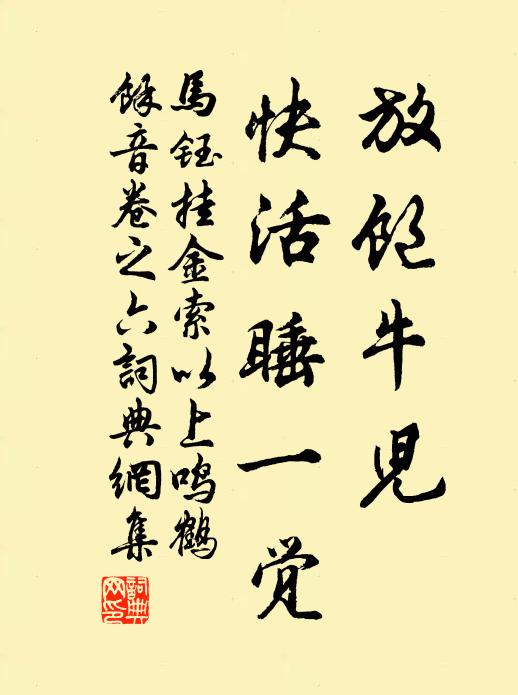 放飽牛児
快活睡一覚
馬鈺挂金索以上鳴鶴
餘音卷之六詞典網集
詞典
网印